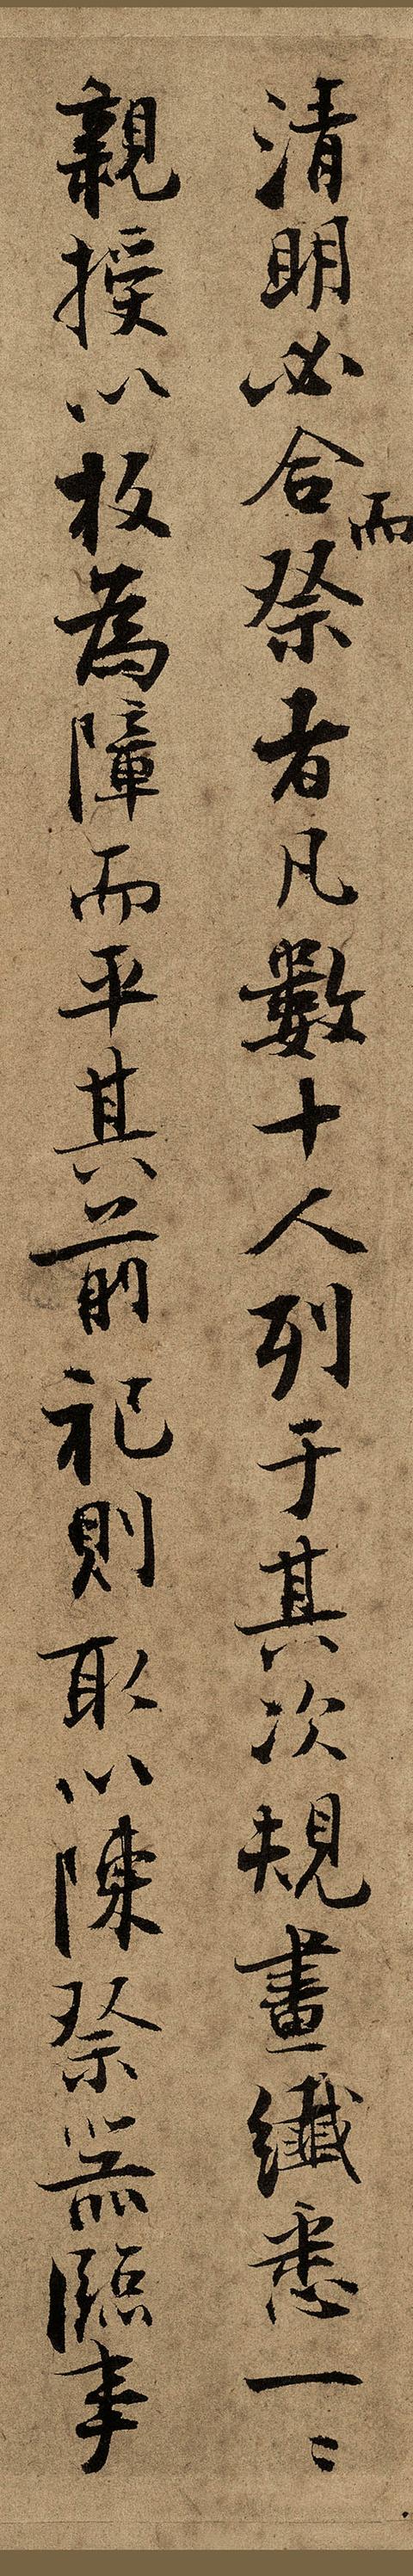 清明必合祭者凡數十人列于其次規畫纖悉一〻
而
親授以板為障而平其前祀則取以陳祭器臨事